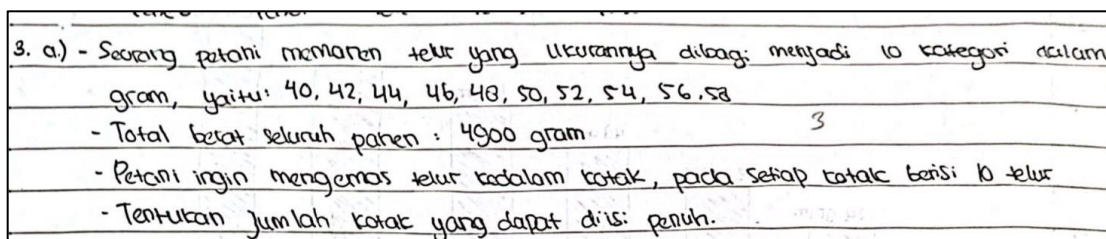 3. a.) - Seorang petani memanen telur yang ukurannya dibagi menjadi 10 kategori dalam
gram, yaitu: 40, 42, 44, 46, 48, 50, 52, 54, 56, 58
- Total berat seluruh panen : 4900 gram
3
- Petani ingin mengemas telur kedalam kotak, pada setiap kotak berisi 10 telur
- Tentukan jumlah kotak yang dapat diisi penuh.